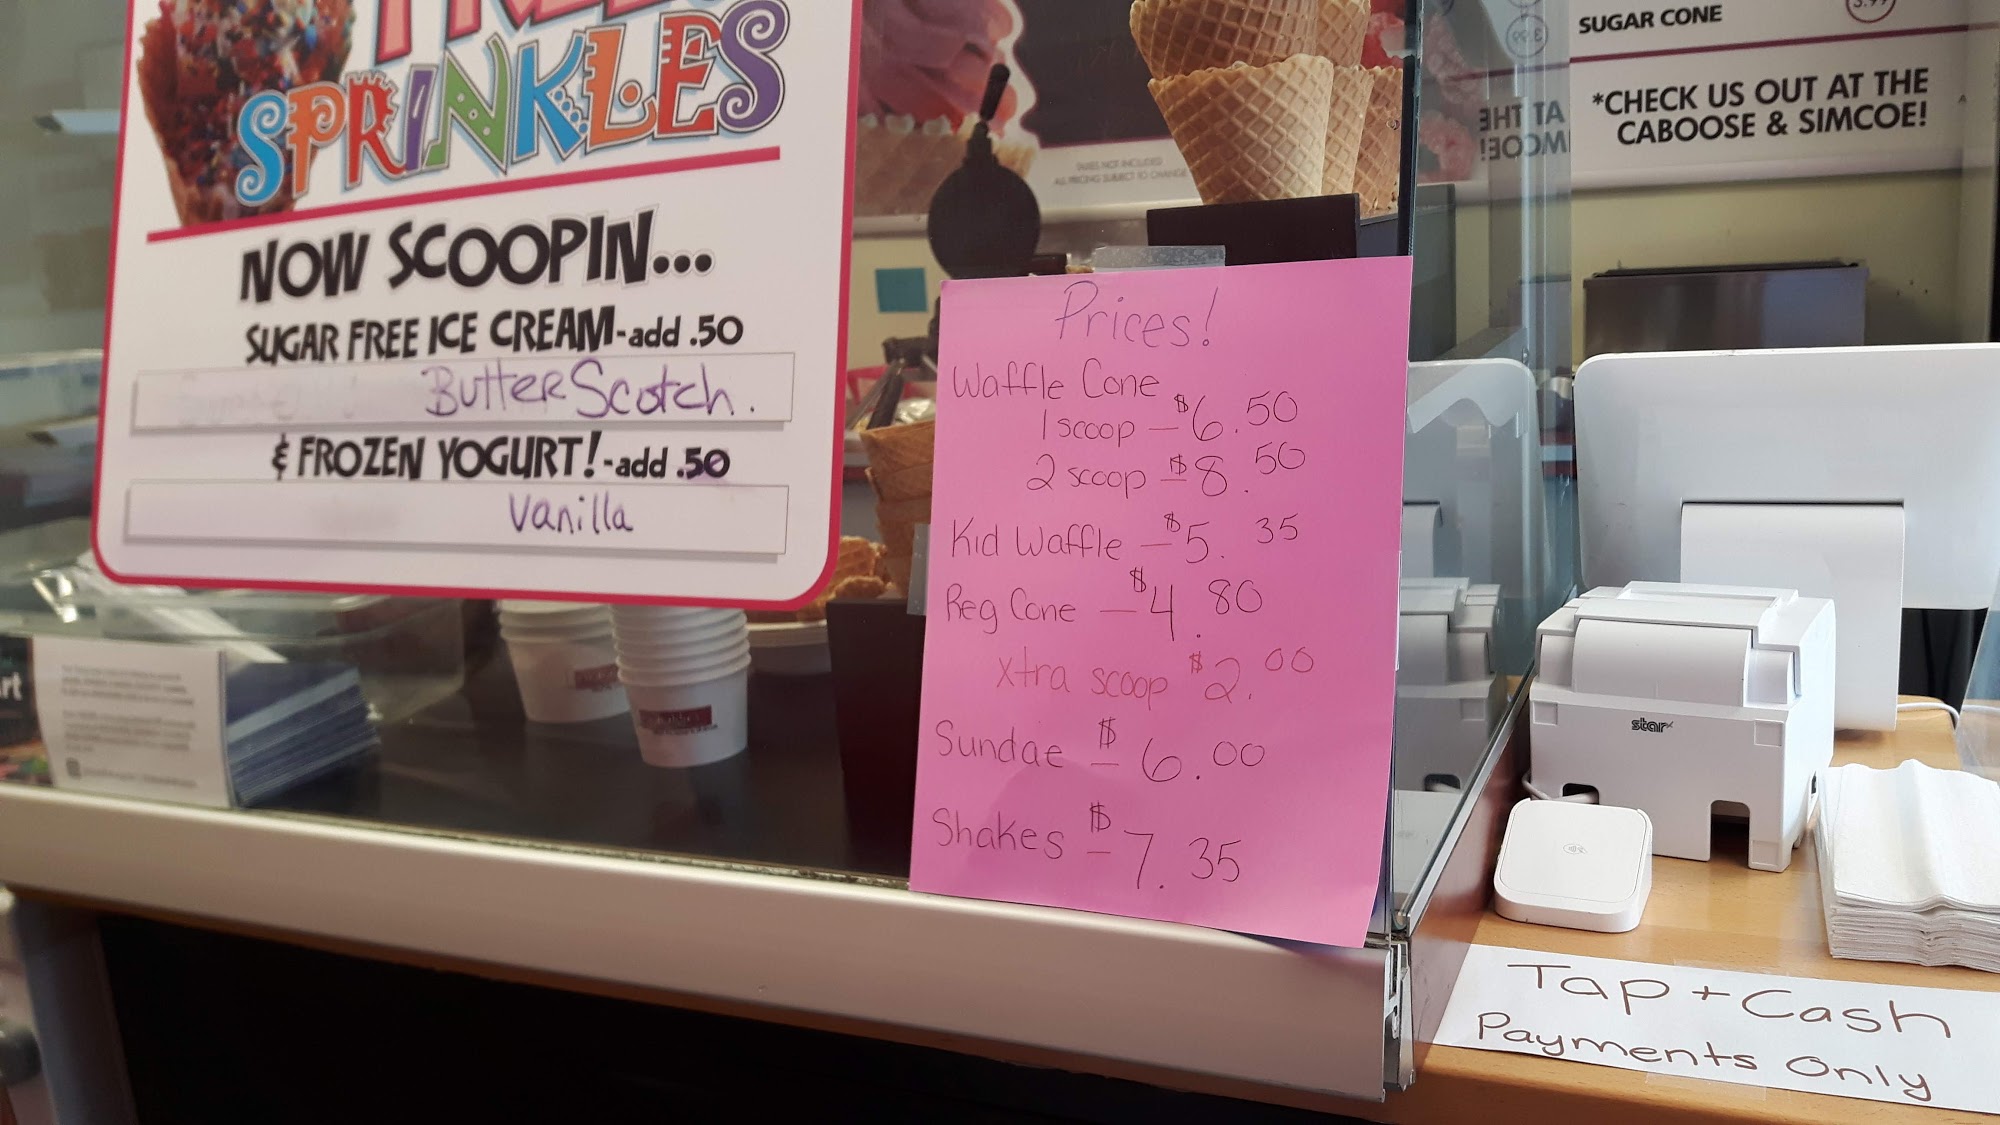 FREE
SPRINKLES
NOW SCOOPIN...
SUGAR FREE ICE CREAM-add .50
ButterScotch.
& FROZEN YOGURT!-add .50
Vanilla
TAXES NOT INCLUDED
ALL PRICING SUBJECT TO CHANGE
Prices!
Waffle Cone
1 scoop - $6.50
2 scoop - $8.50
Kid Waffle - $5.35
Reg Cone - $4.80
xtra scoop $2.00
Sundae - $6.00
Shakes - $7.35
3.99
SUGAR CONE
*CHECK US OUT AT THE
CABOOSE & SIMCOE!
star
Tap + Cash
Payments Only